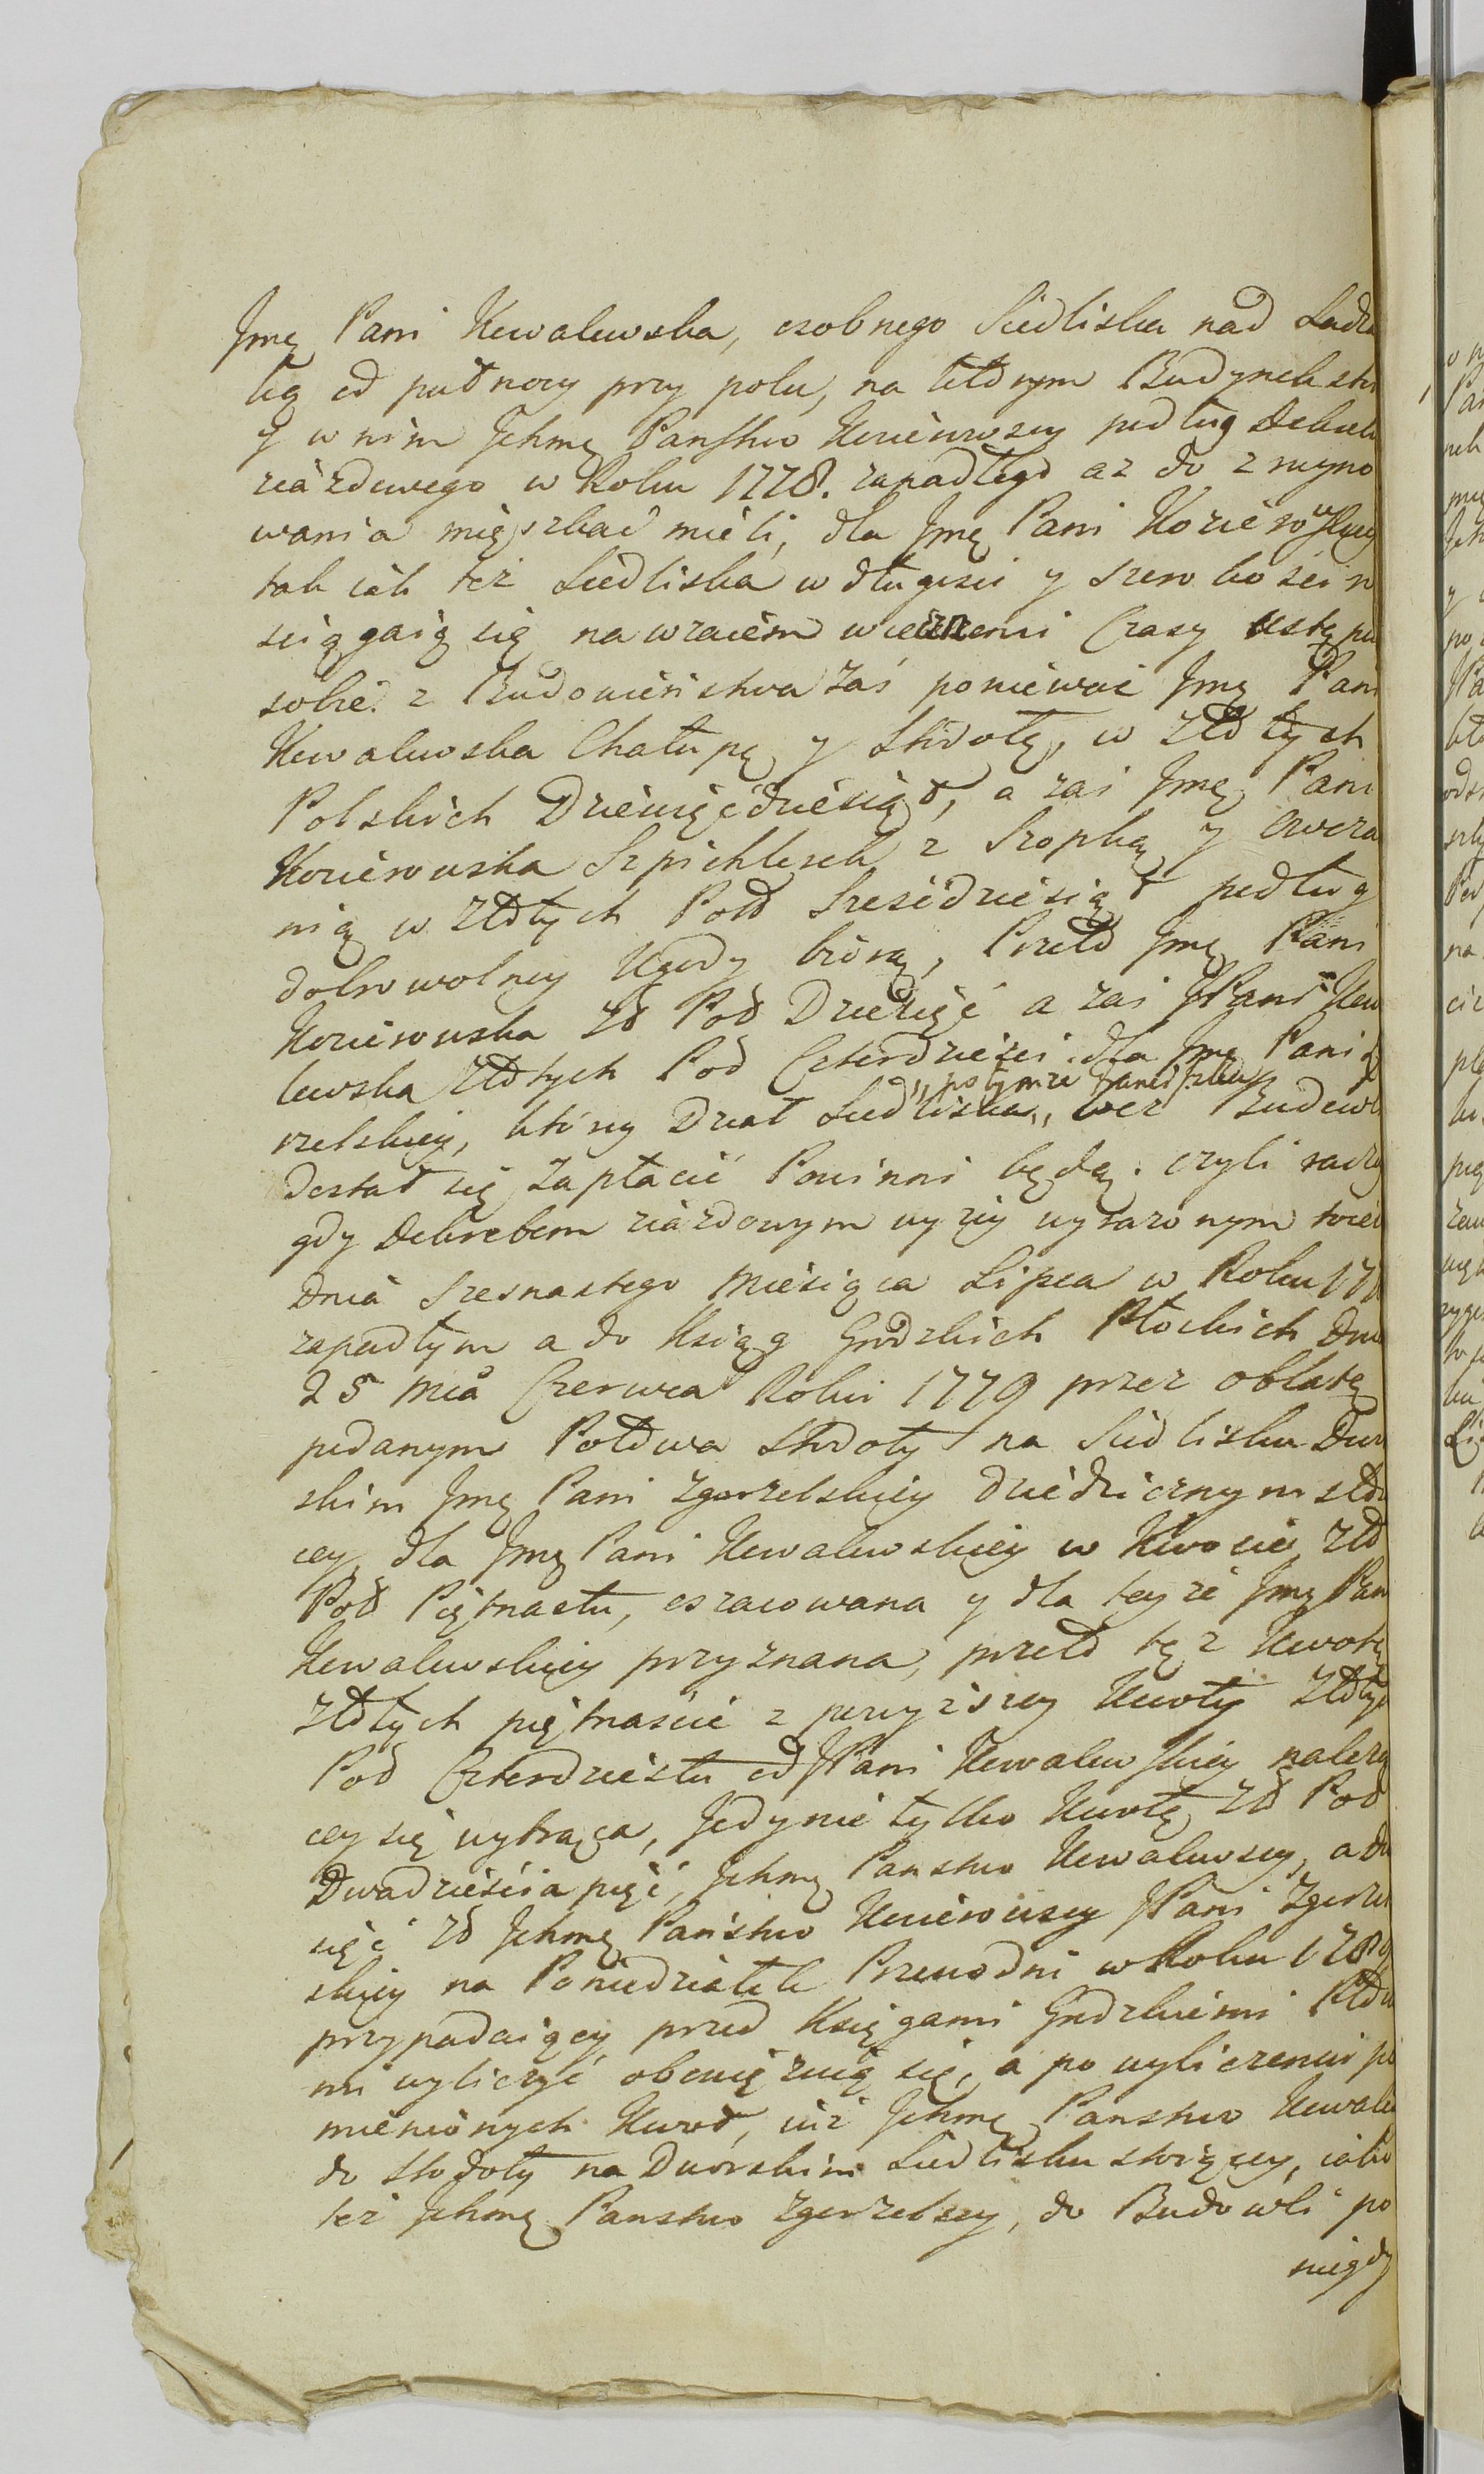 Jmę Pani Kowalewska, osobnego Siedliska nad Sadza
lią od pułnocy przy polu, na któ rym Budynek sto
y w nim Jchmę Pańſtwo Koziorowscy podług Dekretu
ziazdowego w Roku 1778. zapadłego aż do zruyno
wania mięszkać mieli, dla Jmę Pani Koziorowſkiey
tak iak też Siedliska w długości y szerokości w
sciągaią się nawzaiem wiecznemi Czasy ustępu
sobie. z Budowieństwa zaś ponieważ Jmę Pani
Kowalewska Chałupę y Stodołę, w Złotych
Polskich Dziewięćdziesiąt, a zaś Jmę Pani
Koziorowska Szpichlerek z Szopką y Owcza
nią w Złotych Pols Sześćdziesiąt podług
dobrowolney Ugody biorą, Przeto Jmę Pani
Koziorowska Zł Pol Dziesięć a zaś JPani Kow
lewska Złotych Pol Czterdzieści dla Jmę Pani Z
rzelskiey, którey Dział Siedliska,, bez Budowli
dostał się zapłacić Powinni będą. czyli raczy
gdy Dekretem ziazdowym wyżey wyrażonym
Dnia Szesnastego Miesiąca Lipca w Roku 177
zapadłym a do Xsiąg Grodzkich Płockich Dnia
25 Mca Czerwca Roku 1779 przez oblatę
podanym Połowa Stodoły na Siedlisku Dwo
skim Jmę Pani Zgorzelskiey dziedzicznym sto
cey, dla Jmę Pani Kowalewskiey w Kwocie Zło
Pol Piętnastu, oszacowana y dla teyże Jmę Pan
Kowalewskiey przyznana, przeto tęż Kwotę
Złotych piętnaście z powyższey Kwoty Złoty
Pol Czterdziestu od JPani Kowalewſkiey należą
cey się wytrąca, Jedynie tylko Kwotę Zł Pol
Dwadzieścia pięć, Jchmę Panstwo Kowalewscy, a dzie
sięć Zł Jchmę Państwo Koziorowscy JPani Zgorze
skiey na Poniedziałek Przewodni w Roku 178
przypadaiący przed Księgami Grodzkiemi Płoc
mi wyliczyć obowięzuią się, a po wyliczeniu po
mienionych Kwot, iuż Jchmę Panstwo Kowale
do Stodoły na Dworskim Siedlisku stoięcey, iako
też Jchmę Panstwo Zgorzelscy, do Budowli po
między